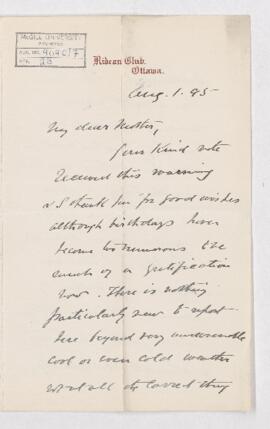 McGILL UNIVERSITY
ARCHIVES
ACC. NO.
REF.
Rideau Club,
Ottawa.
Aug. 1. 95
My dear Mother,
Your kind note
received this morning
& I thank you for good wishes
although birthdays have
become too numerous to be
much of a gratification
now. There is nothing
particularly new to report
here beyond very unseasonable
cool or even cold weather
not at all the correct thing